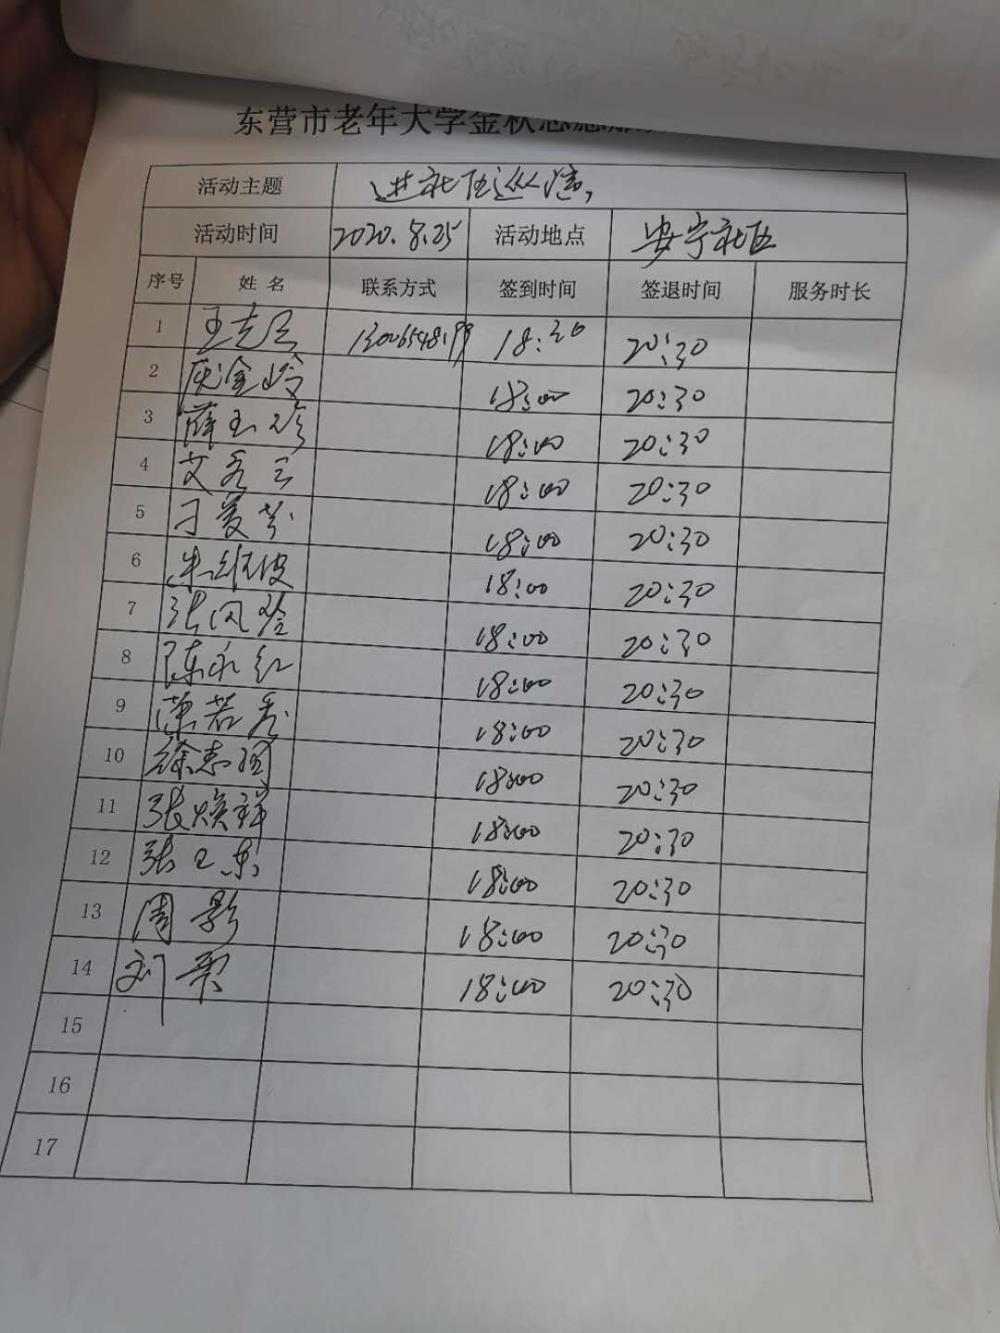 东营市老年大学金秋志愿服
活动主题 进社区巡演
活动时间 2020.8.25 活动地点 安宁社区
序号 姓名 联系方式 签到时间 签退时间 服务时长
1 18:30 20:30
2 庞金岭 18:00 20:30
3 薛玉珍 18:00 20:30
4 艾秀兰 18:00 20:30
5 刁爱芬 18:00 20:30
6 朱维波 18:00 20:30
7 张凤玲 18:00 20:30
8 陈永红 18:00 20:30
9 18:00 20:30
10 徐志国 18:00 20:30
11 张焕祥 18:00 20:30
12 张卫东 18:00 20:30
13 周影 18:00 20:30
14 刘荣 18:00 20:30
15
16
17